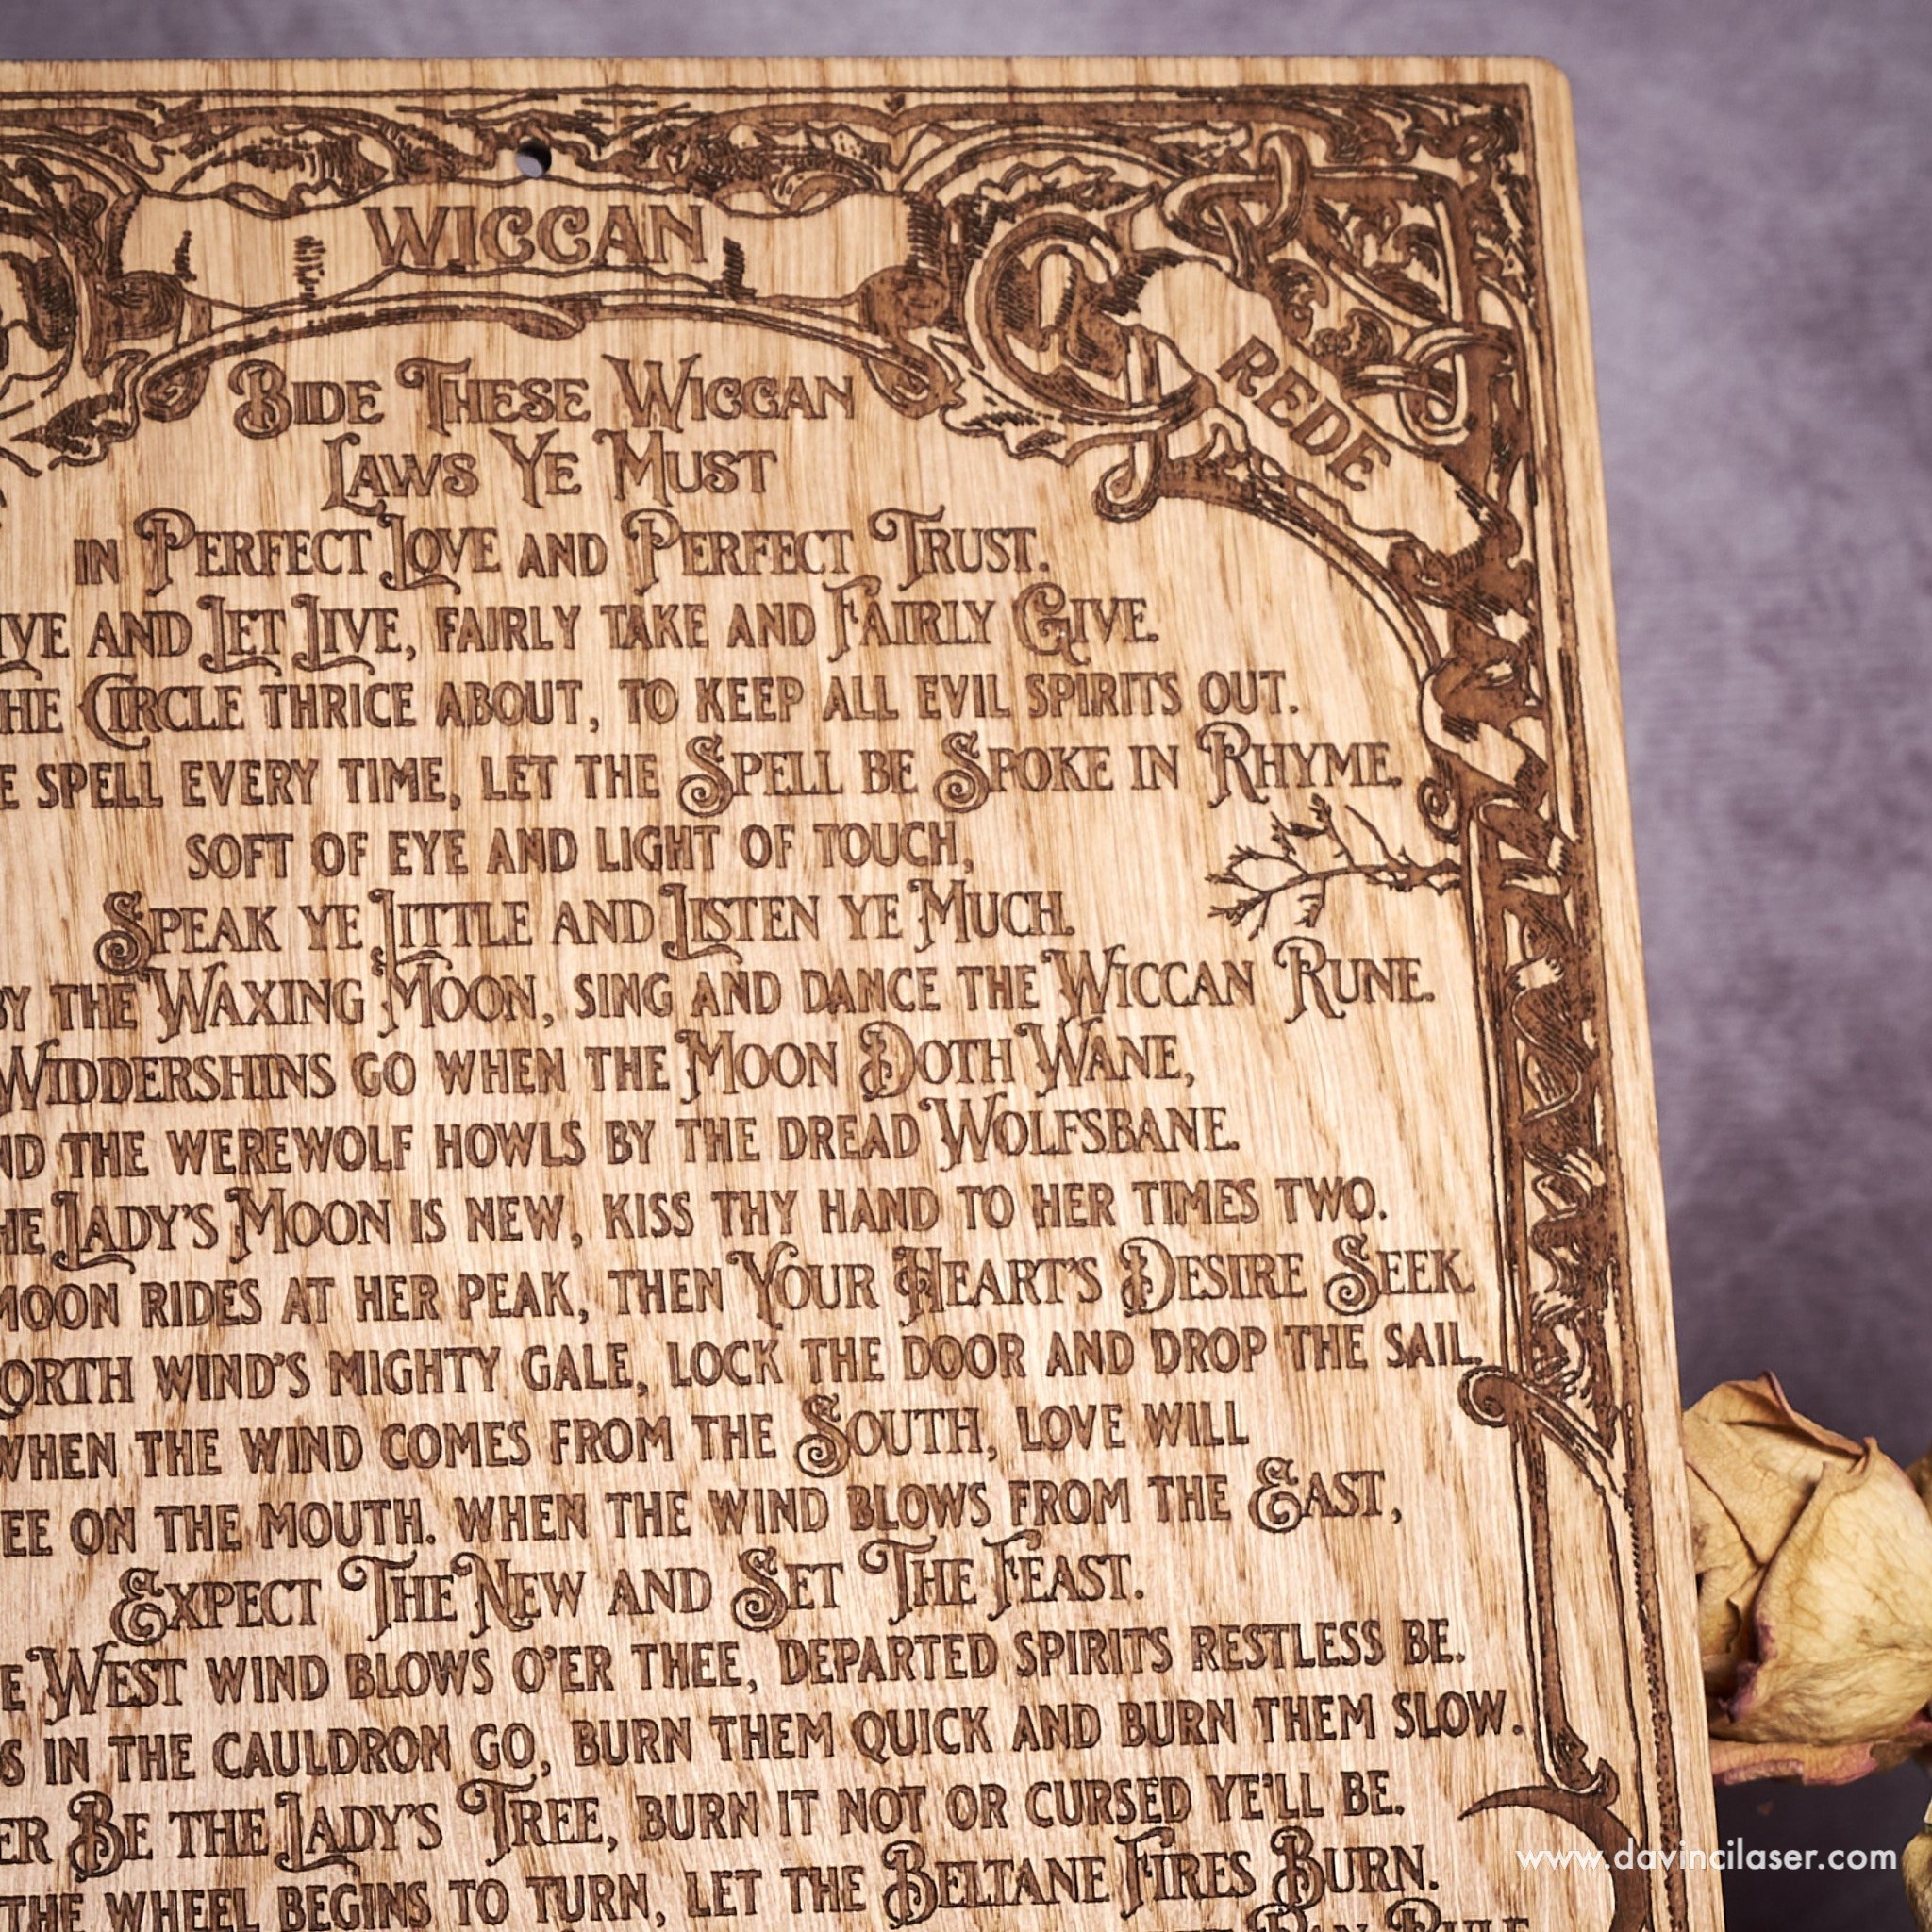 WICCAN
REDE
BIDE THESE WICCAN
LAWS YE MUST
IN PERFECT LOVE AND PERFECT TRUST.
AND LET LIVE, FAIRLY TAKE AND FAIRLY GIVE.
CIRCLE THRICE ABOUT, TO KEEP ALL EVIL SPIRITS OUT.
SPELL EVERY TIME, LET THE SPELL BE SPOKE IN RHYME.
SOFT OF EYE AND LIGHT OF TOUCH,
SPEAK YE LITTLE AND LISTEN YE MUCH.
BY THE WAXING MOON, SING AND DANCE THE WICCAN RUNE.
WIDDERSHINS GO WHEN THE MOON DOTH WANE,
THE WEREWOLF HOWLS BY THE DREAD WOLFSBANE.
LADY'S MOON IS NEW, KISS THY HAND TO HER TIMES TWO.
MOON RIDES AT HER PEAK, THEN YOUR HEART'S DESIRE SEEK.
WIND'S MIGHTY GALE, LOCK THE DOOR AND DROP THE SAIL.
WHEN THE WIND COMES FROM THE SOUTH, LOVE WILL
ON THE MOUTH. WHEN THE WIND BLOWS FROM THE EAST,
EXPECT THE NEW AND SET THE FEAST.
WEST WIND BLOWS O'ER THEE, DEPARTED SPIRITS RESTLESS BE.
IN THE CAULDRON GO, BURN THEM QUICK AND BURN THEM SLOW.
BE THE LADY'S TREE, BURN IT NOT OR CURSED YE'LL BE.
THE WHEEL BEGINS TO TURN, LET THE BELTANE FIRES BURN.
www.davincilaser.com